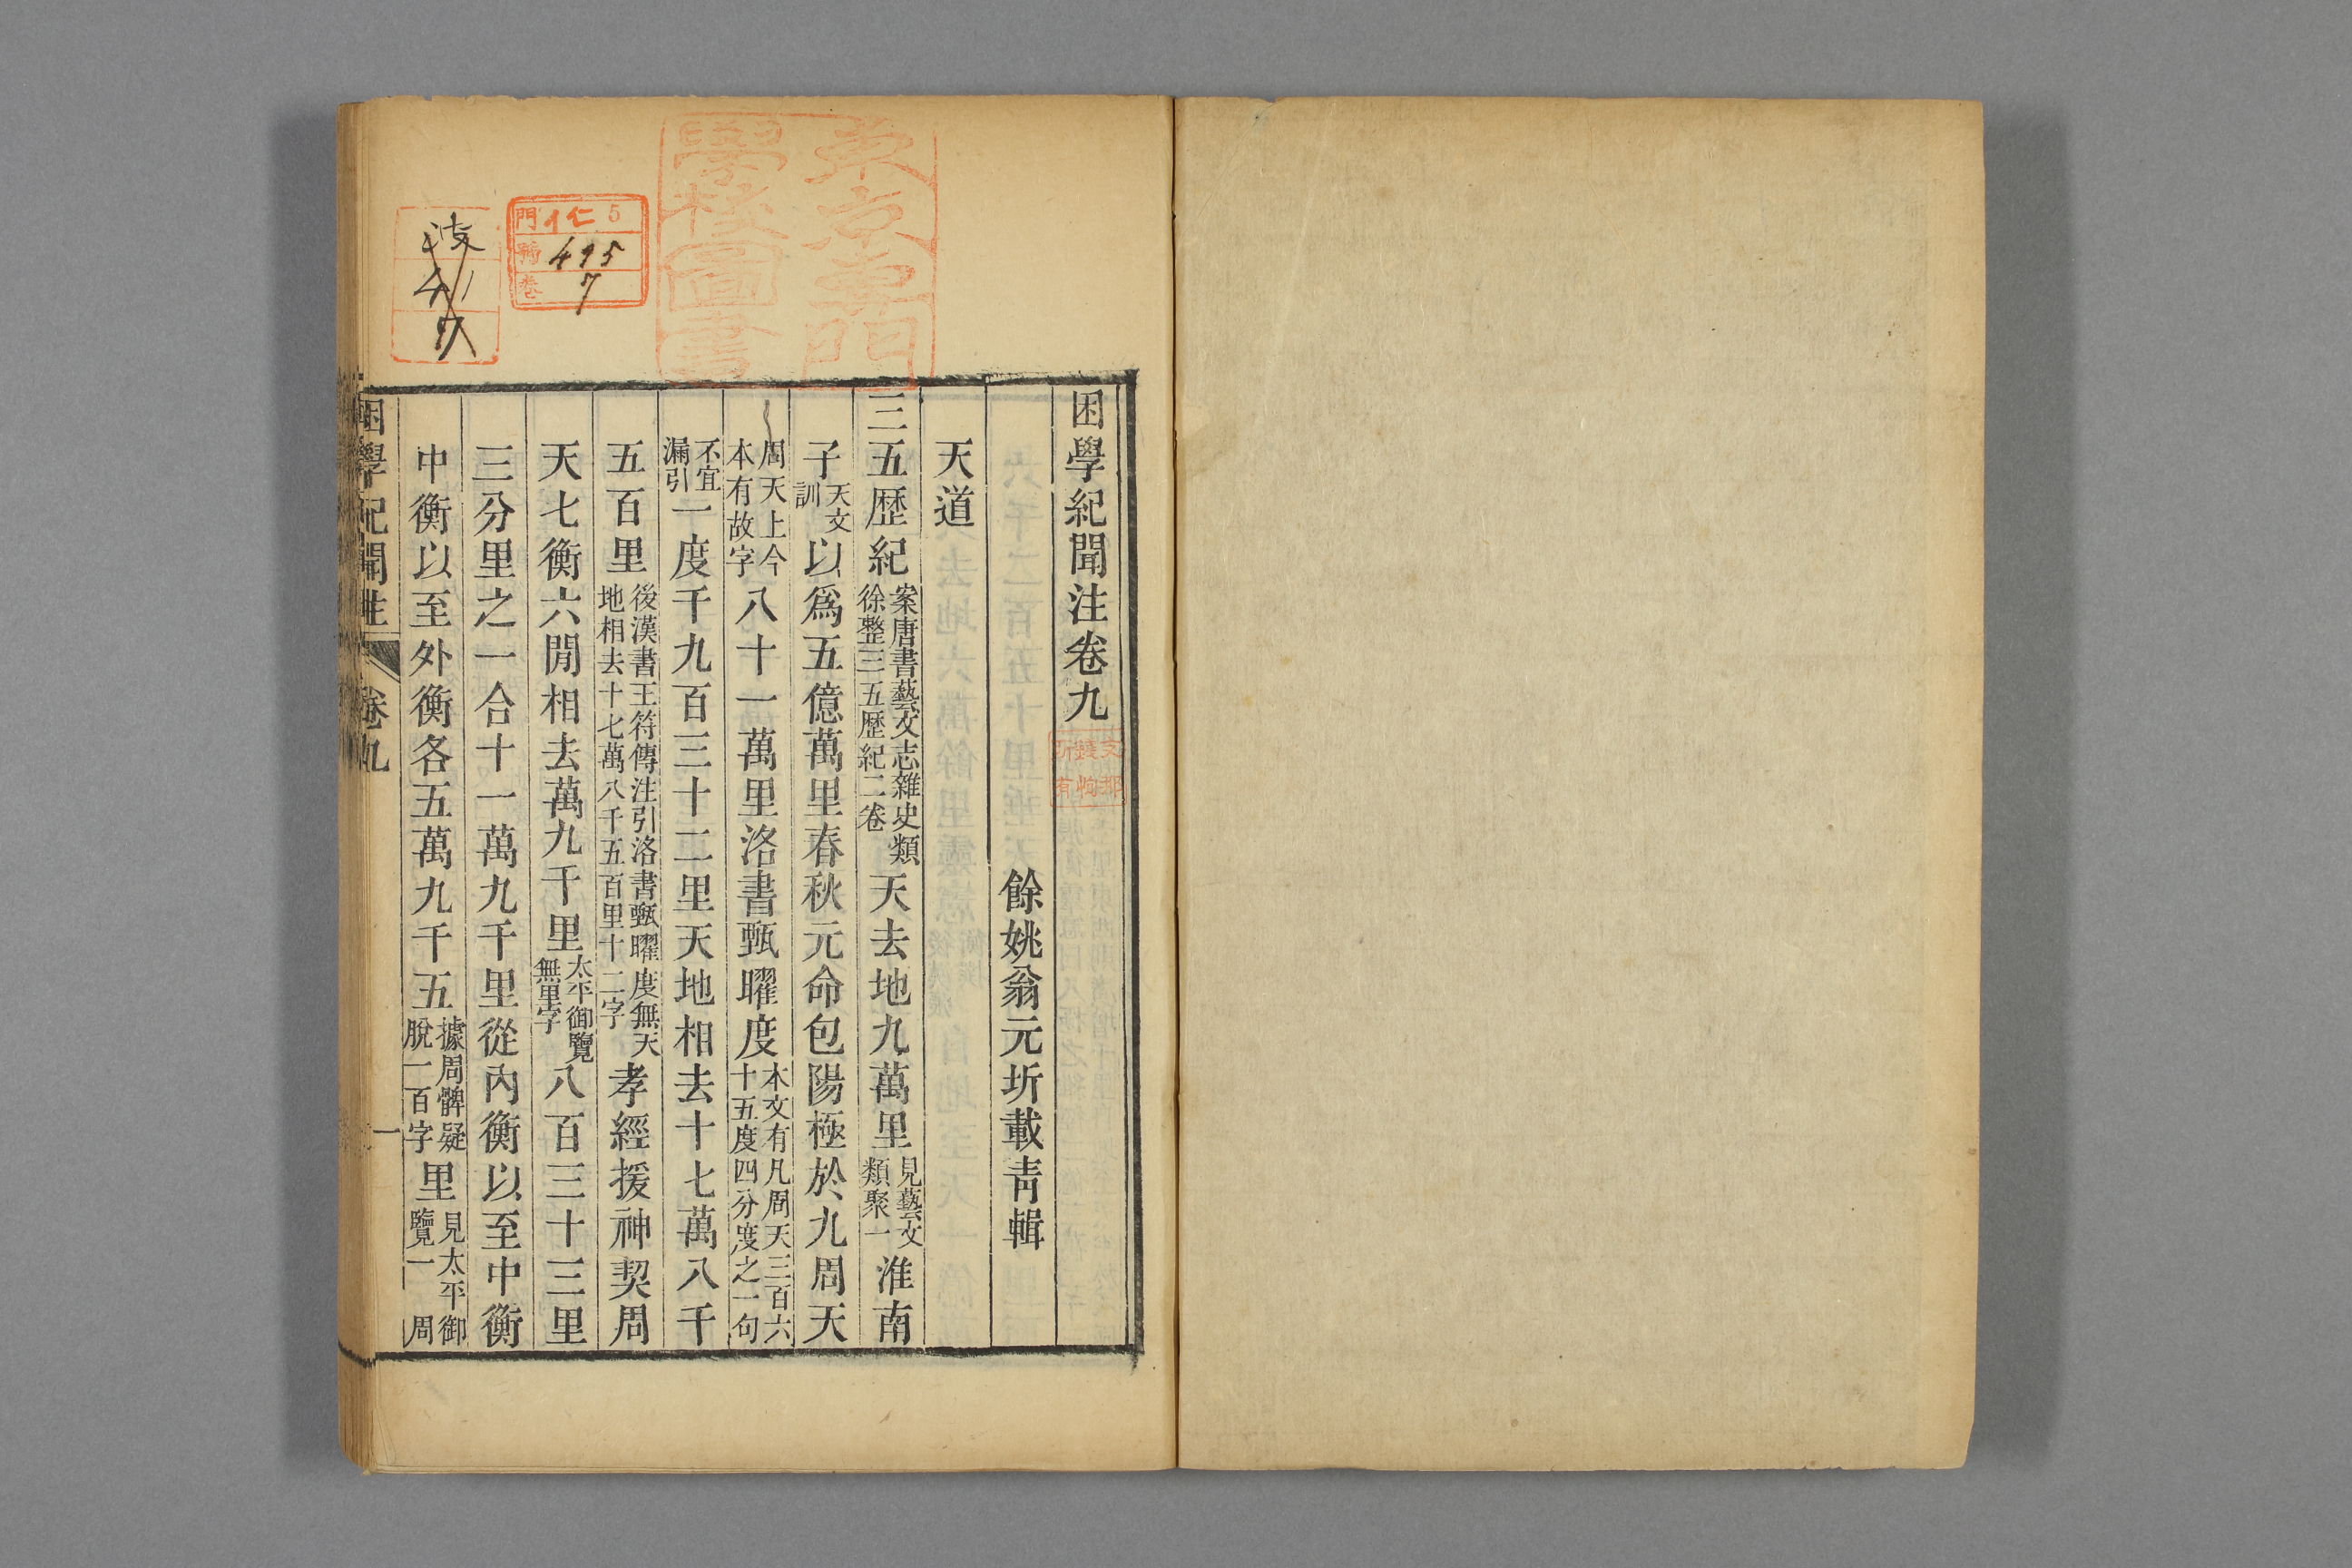 困學紀聞注卷九
餘姚翁元圻載青輯
天道
三五歷紀案唐書藝文志雜史類徐整三五歷紀二卷天去地九萬里見藝文類聚一淮南
子天文訓以爲五億萬里春秋元命包陽極於九周天
周天上今本有故字八十一萬里洛書甄曜度本文有凡周天三百六十五度四分度之一句
不宜漏引一度千九百三十二里天地相去十七萬八千
五百里後漢書王符傳注引洛書甄曜度無天地相去十七萬八千五百里十二字孝經援神契周
天七衡六閒相去萬九千里太平御覽無里字八百三十三里
三分里之一合十一萬九千里從內衡以至中衡
中衡以至外衡各五萬九千五據周髀疑脫一百字里見太平御覽一周
困學紀聞注 卷九 一
東京專門學校圖書
門 イ仁 5
號 495
卷 7
7